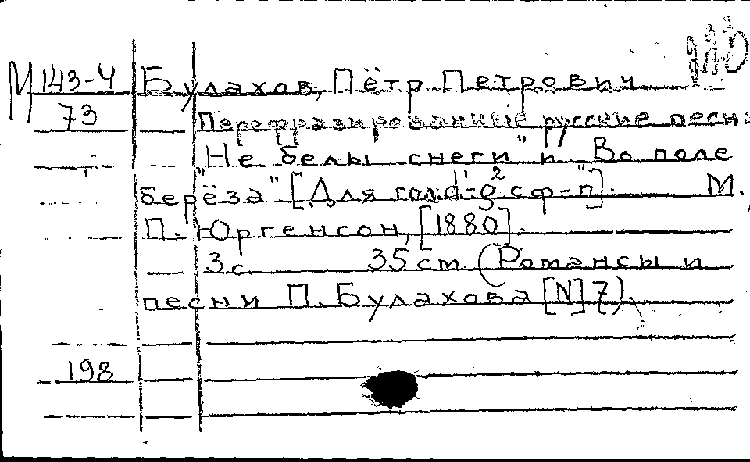 М 143-4 Булахов, Пётр Петрович
73 Перефразированные русские песни
"Не белы снеги" и "Во поле
берёза" [Для гол. d¹-g² с ф-п]. М.,
П. Юргенсон, [1880].
3 с. 35 cm (Романсы и
песни П. Булахова [N] 7)
198